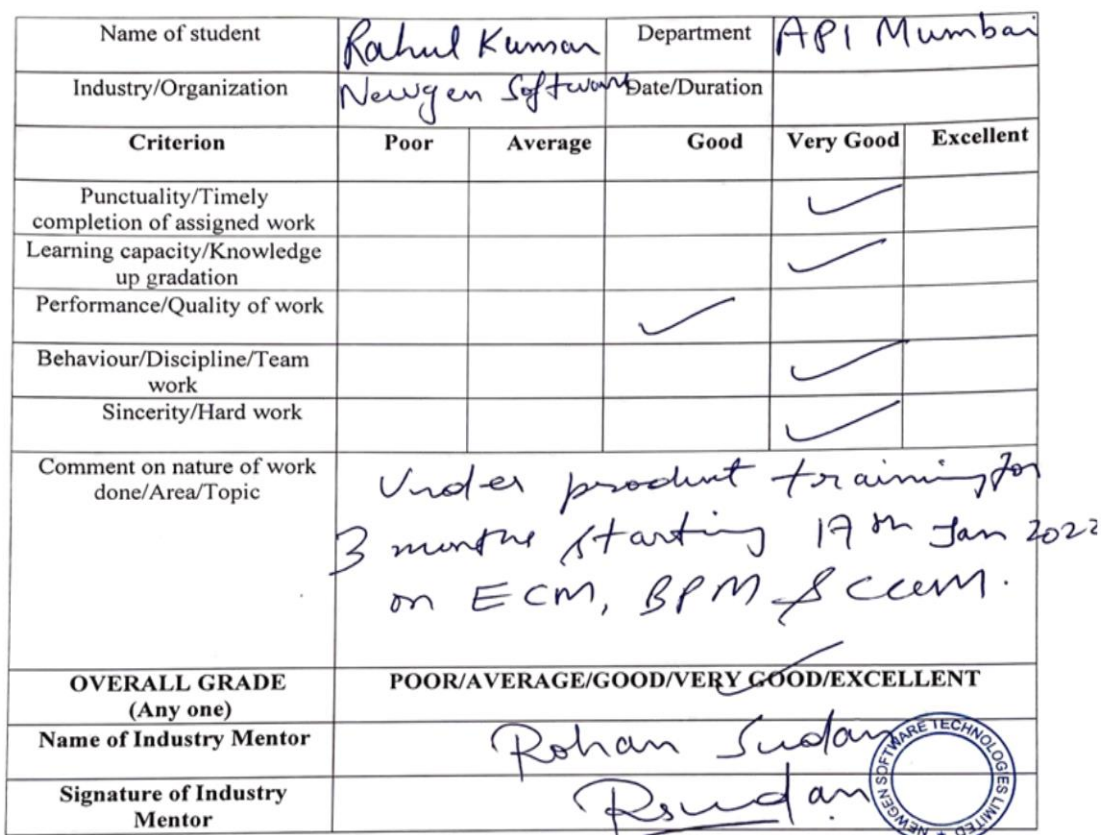 Name of student Rahul Kumar Department API Mumbai
Industry/Organization Newgen Software Date/Duration
Criterion Poor Average Good Very Good Excellent
Punctuality/Timely
completion of assigned work
Learning capacity/Knowledge
up gradation
Performance/Quality of work
Behaviour/Discipline/Team
work
Sincerity/Hard work
Comment on nature of work
done/Area/Topic
Under product training for
3 months starting 17th Jan 2022
on ECM, BPM & CCM.
OVERALL GRADE
(Any one)
POOR/AVERAGE/GOOD/VERY GOOD/EXCELLENT
Name of Industry Mentor Rohan Sudan
Signature of Industry
Mentor
Rsudan
NEWGEN SOFTWARE TECHNOLOGIES LIMITED